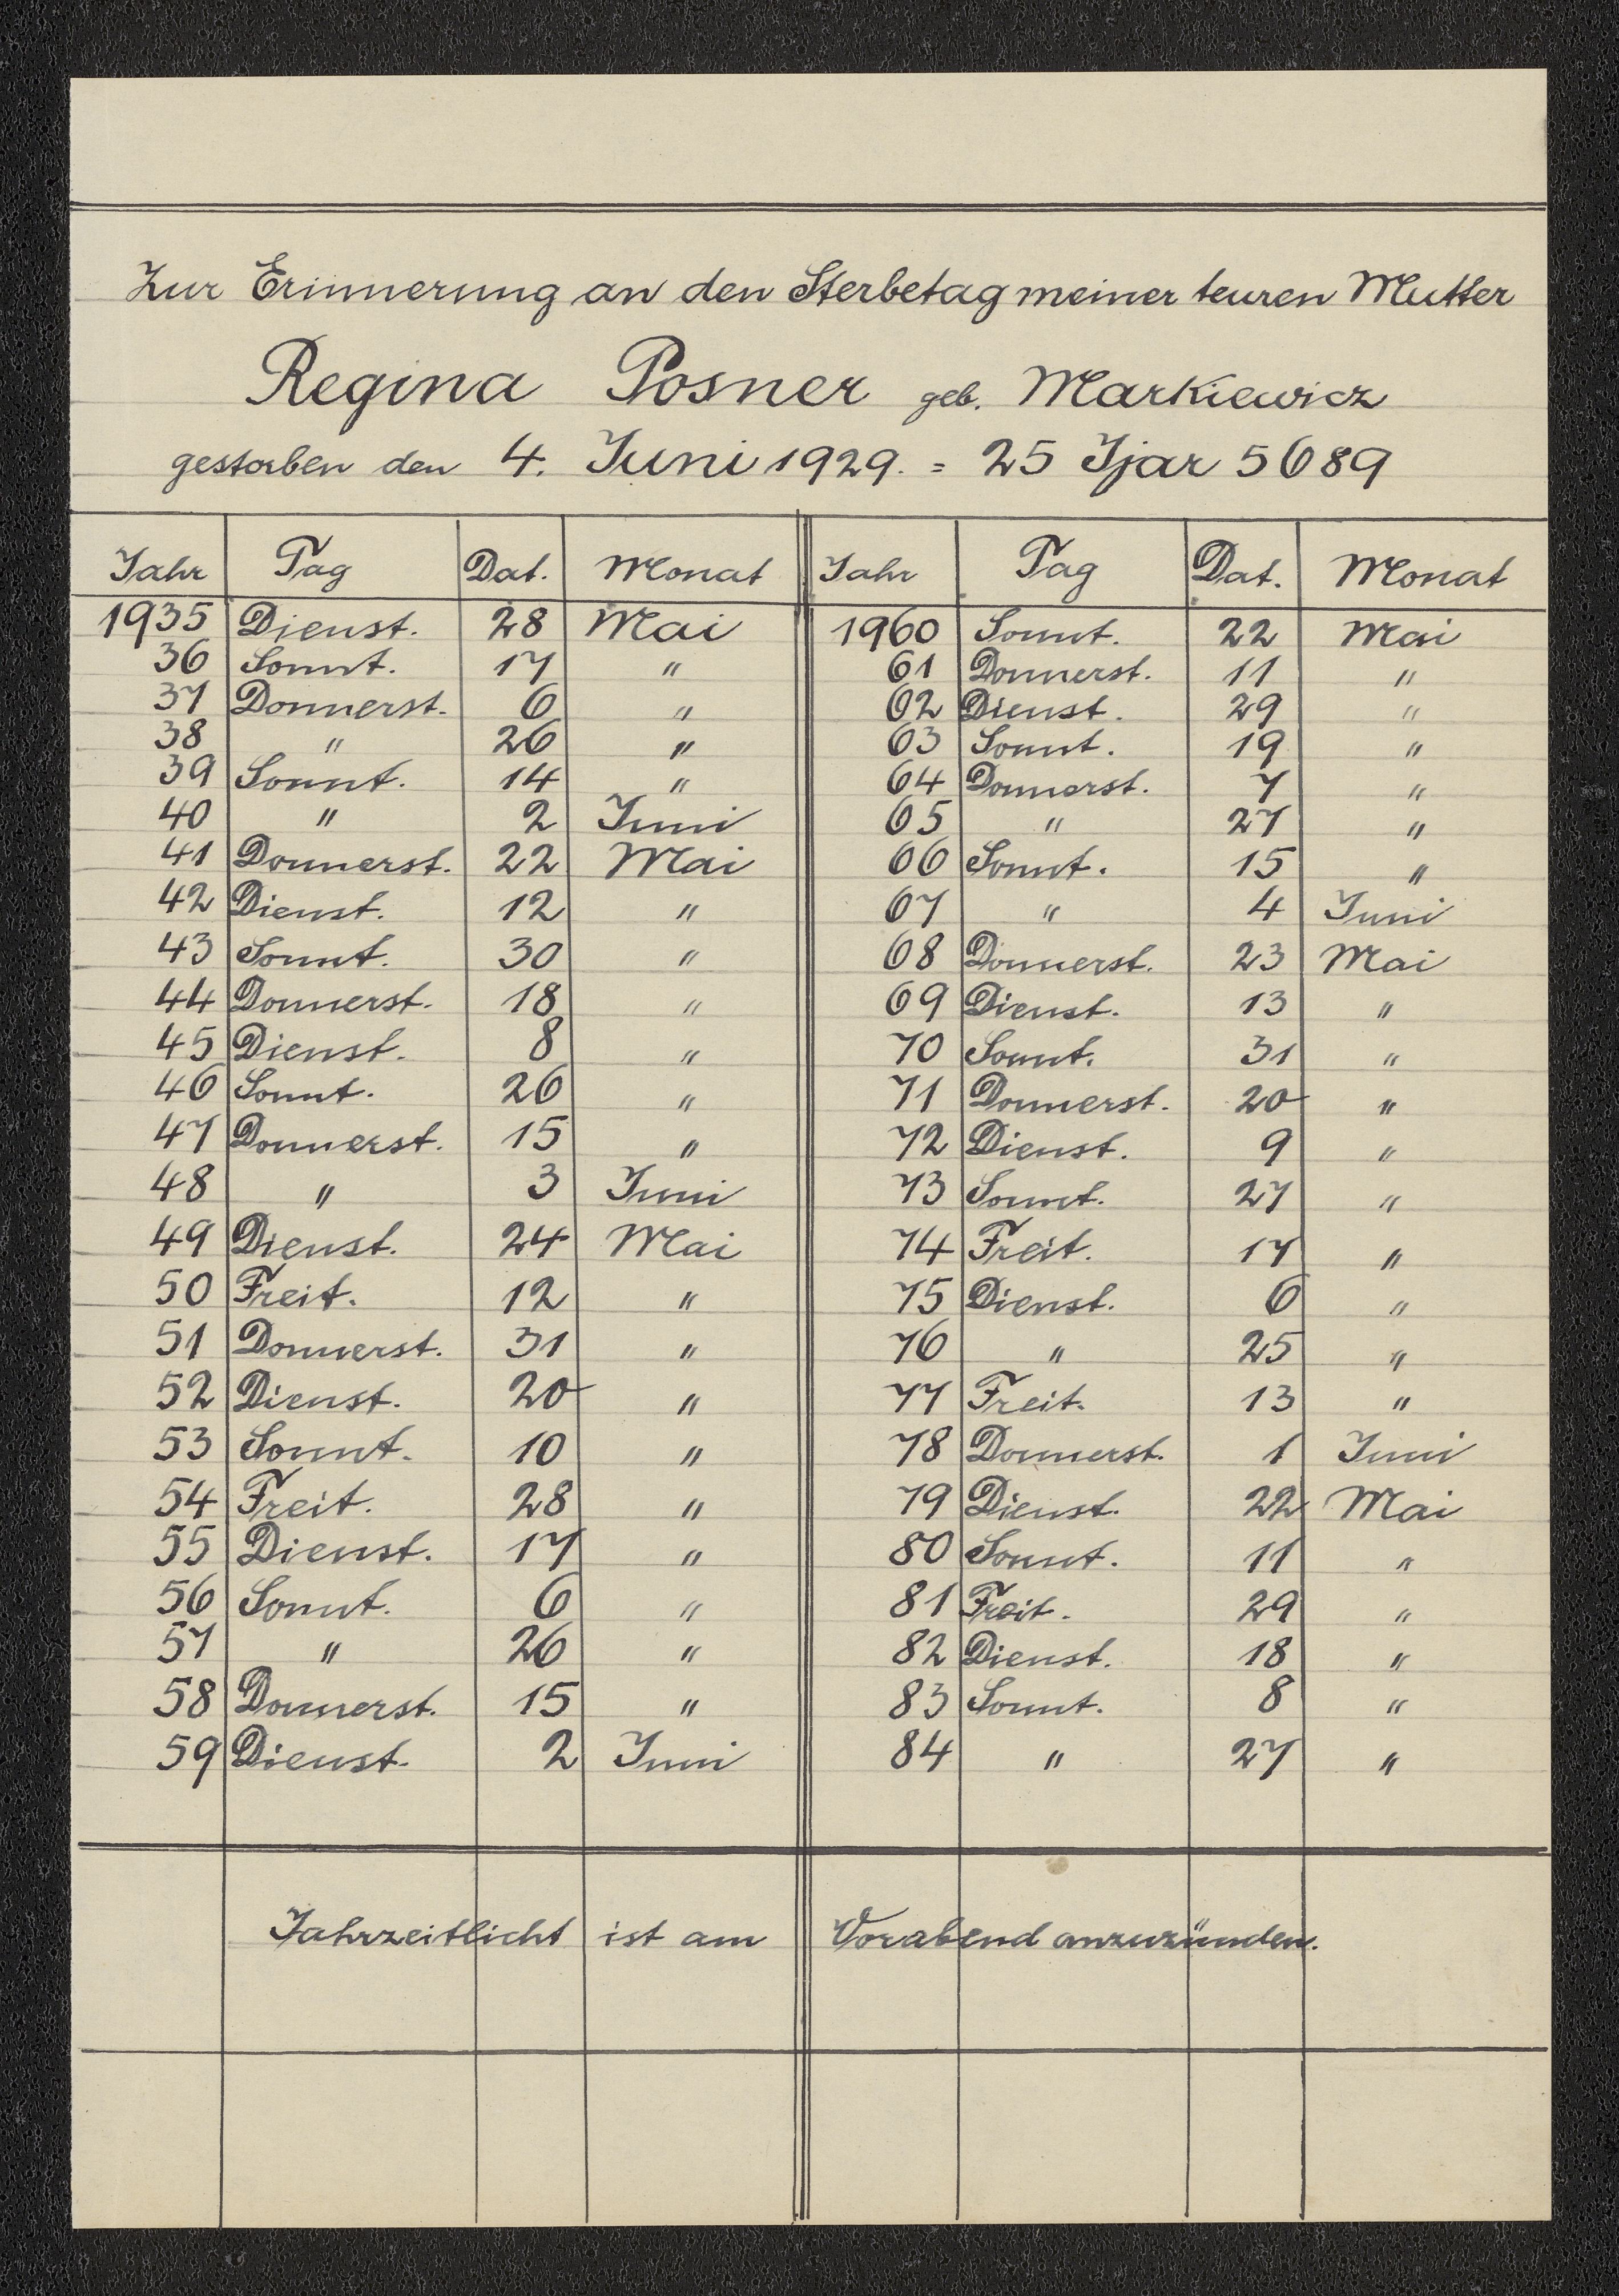 Zur Erinnerung an den Sterbetag meiner teuren Mutter
Regina Posner geb. Markiewicz
gestorben den 4. Juni 1929. = 25 Ijar 5689
Jahr Tag Dat. Monat Jahr Tag Dat. Monat
1935 Dienst. 28 Mai 1960 Sonnt. 22 Mai
36 Sonnt. 17 " 61 Donnerst. 11 "
37 Donnerst. 6 " 62 Dienst. 29 "
38 " 26 " 63 Sonnt. 19 "
39 Sonnt. 14 " 64 Donnerst. 7 "
40 " 2 Juni 65 " 27 "
41 Donnerst. 22 Mai 66 Sonnt. 15 "
42 Dienst. 12 " 67 " 4 Juni
43 Sonnt. 30 " 68 Donnerst. 23 Mai
44 Donnerst. 18 " 69 Dienst. 13 "
45 Dienst. 8 " 70 Sonnt. 31 "
46 Sonnt. 26 " 71 Donnerst. 20 "
47 Donnerst. 15 " 72 Dienst. 9 "
48 " 3 Juni 73 Sonnt. 27 "
49 Dienst. 24 Mai 74 Freit. 17 "
50 Freit. 12 " 75 Dienst. 6 "
51 Donnerst. 31 " 76 " 25 "
52 Dienst. 20 " 77 Freit. 13 "
53 Sonnt. 10 " 78 Donnerst. 1 Juni
54 Freit. 28 " 79 Dienst. 22 Mai
55 Dienst. 17 " 80 Sonnt. 11 "
56 Sonnt. 6 " 81 Freit. 29 "
57 " 26 " 82 Dienst. 18 "
58 Donnerst. 15 " 83 Sonnt. 8 "
59 Dienst. 2 Juni 84 " 27 "
Jahrzeitlicht ist am Vorabend anzuzünden.